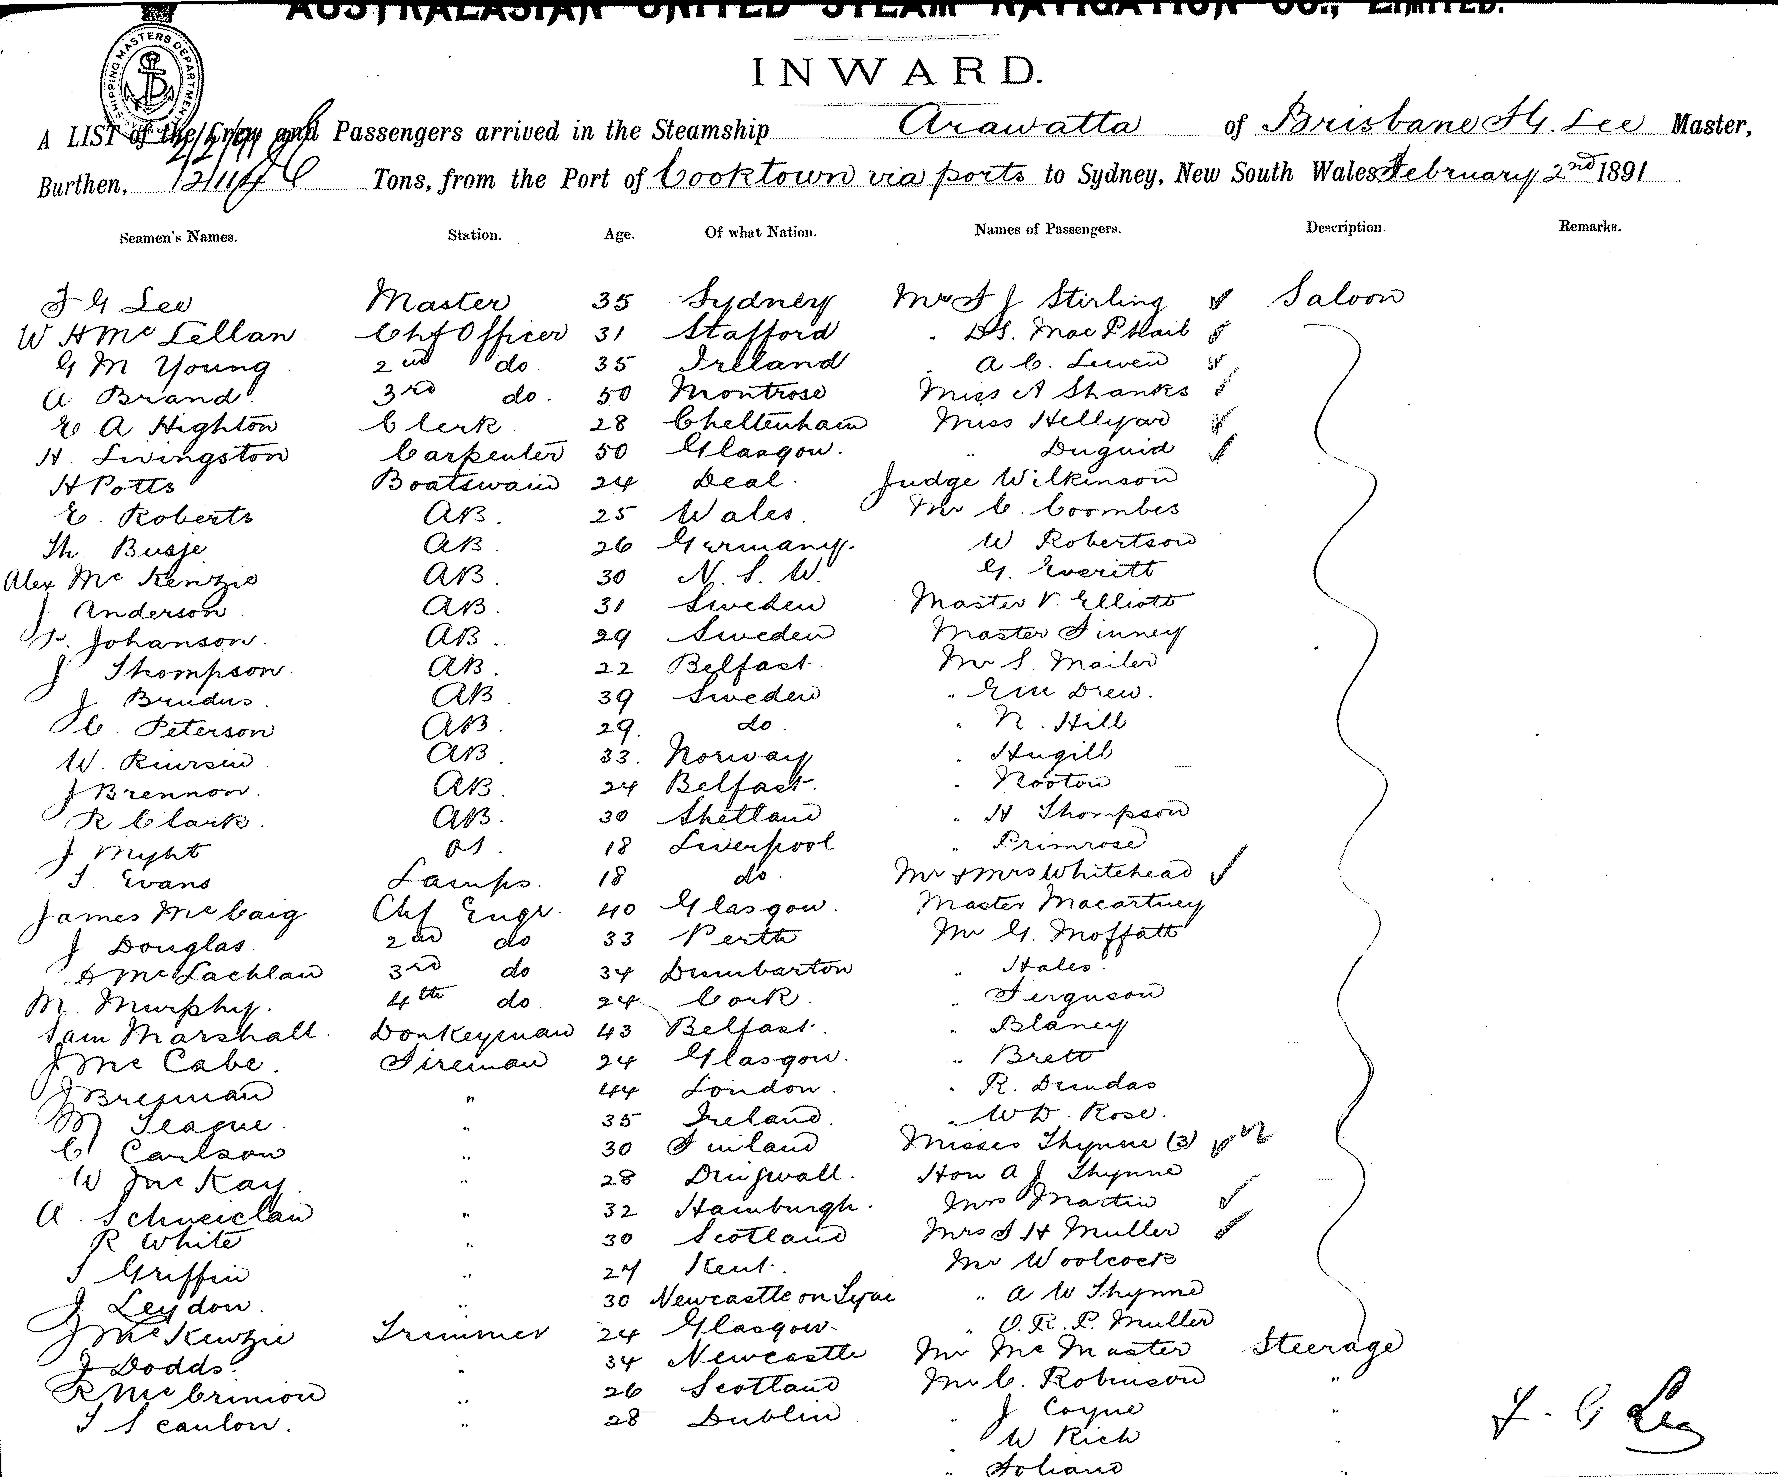 AUSTRALASIAN UNITED STEAM NAVIGATION CO., LIMITED.
INWARD.
SHIPPING MASTERS DEPARTMENT
A LIST of the Crew and Passengers arrived in the Steamship Arawatta of Brisbane F G. Lee Master,
Burthen, Tons, from the Port of Cooktown via ports to Sydney, New South Wales February 2nd 1891
Seamen's Names. Station. Age. Of what Nation. Names of Passengers. Description. Remarks.
F G Lee Master 35 Sydney Mr F J Stirling Saloon
W H Mc Lellan Chf Officer 31 Stafford " D S. Mac Phail
G M Young 2nd do 35 Ireland " A C. Lewen
A Brand 3rd do. 50 Montrose Miss A Shanks
E A Highton Clerk 28 Cheltenham Miss Hellyar
H. Livingston Carpenter 50 Glasgow. " Duguid
H Potts Boatswain 24 Deal. Judge Wilkinson
E. Roberts AB. 25 Wales. Mr C. Coombes
Th Busje AB. 26 Germany. W Robertson
Alex Mc Kenzie AB. 30 N. S. W. G. Everitt
J Anderson AB. 31 Sweden Master V. Elliott
P. Johanson. AB. 29 Sweden Master Finney
J Thompson. AB. 22 Belfast. Mr S. Mailer
J Brudus. AB. 39 Sweden " Drew.
C. Peterson AB. 29. do " N. Hill
W. AB. 33. Norway " Hugill
J Brennon. AB. 24 Belfast. " Nooton
R Clark. AB. 30 Shetland " H Thompson
J Myht OS. 18 Liverpool " Primrose
T. Evans Lamps. 18 do. Mr & Mrs Whitehead
James Mc Caig Chf Engr. 40 Glasgow. Master Macartney
J Douglas. 2nd do 33 Perth Mr G. Moffatt
A Mc Lachlan 3rd do 34 Dumbarton " Hales.
M. Murphy. 4th do. 24 Cork. " Ferguson
Sam Marshall. Donkeyman 43 Belfast. " Blaney
J Mc Cabe. Fireman 24 Glasgow. " Brett
J Brennan " 44 London. " R. Dundas
M Teague. " 35 Ireland. " W D. Rose.
C Carlson " 30 Finland Misses Thynne (3)
W Mc Kay. " 28 Dingwall. Hon A J Thynne
A. Schneiclau " 32 Hamburgh. Mrs Martin
R White " 30 Scotland Mrs F H Muller
T Griffin " 27 Kent. Mr Woolcock
J Leydon. " 30 Newcastle on Tyne " A W Thynne
J Mc Kenzie Trimmer 24 Glasgow. " O. R. P. Muller
J Dodds. " 34 Newcastle Mr Mc Master Steerage
R Mc Crimion " 26 Scotland Mr C. Robinson "
T Scanlon. " 28 Dublin " J Coyne "
" W Rich "
" Foliano "
F. G Lee